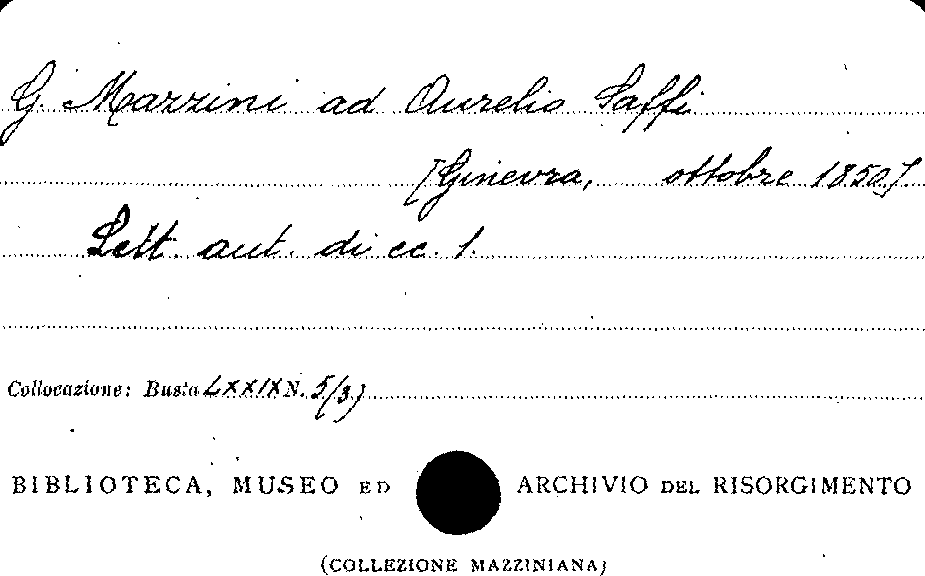 G. Mazzini ad Aurelio Saffi
[Ginevra, ottobre 1850]
Lett. aut. di cc. 1.
Collocazione: Busta LXXIX N. 5/3)
BIBLIOTECA, MUSEO ED ARCHIVIO DEL RISORGIMENTO
(COLLEZIONE MAZZINIANA)